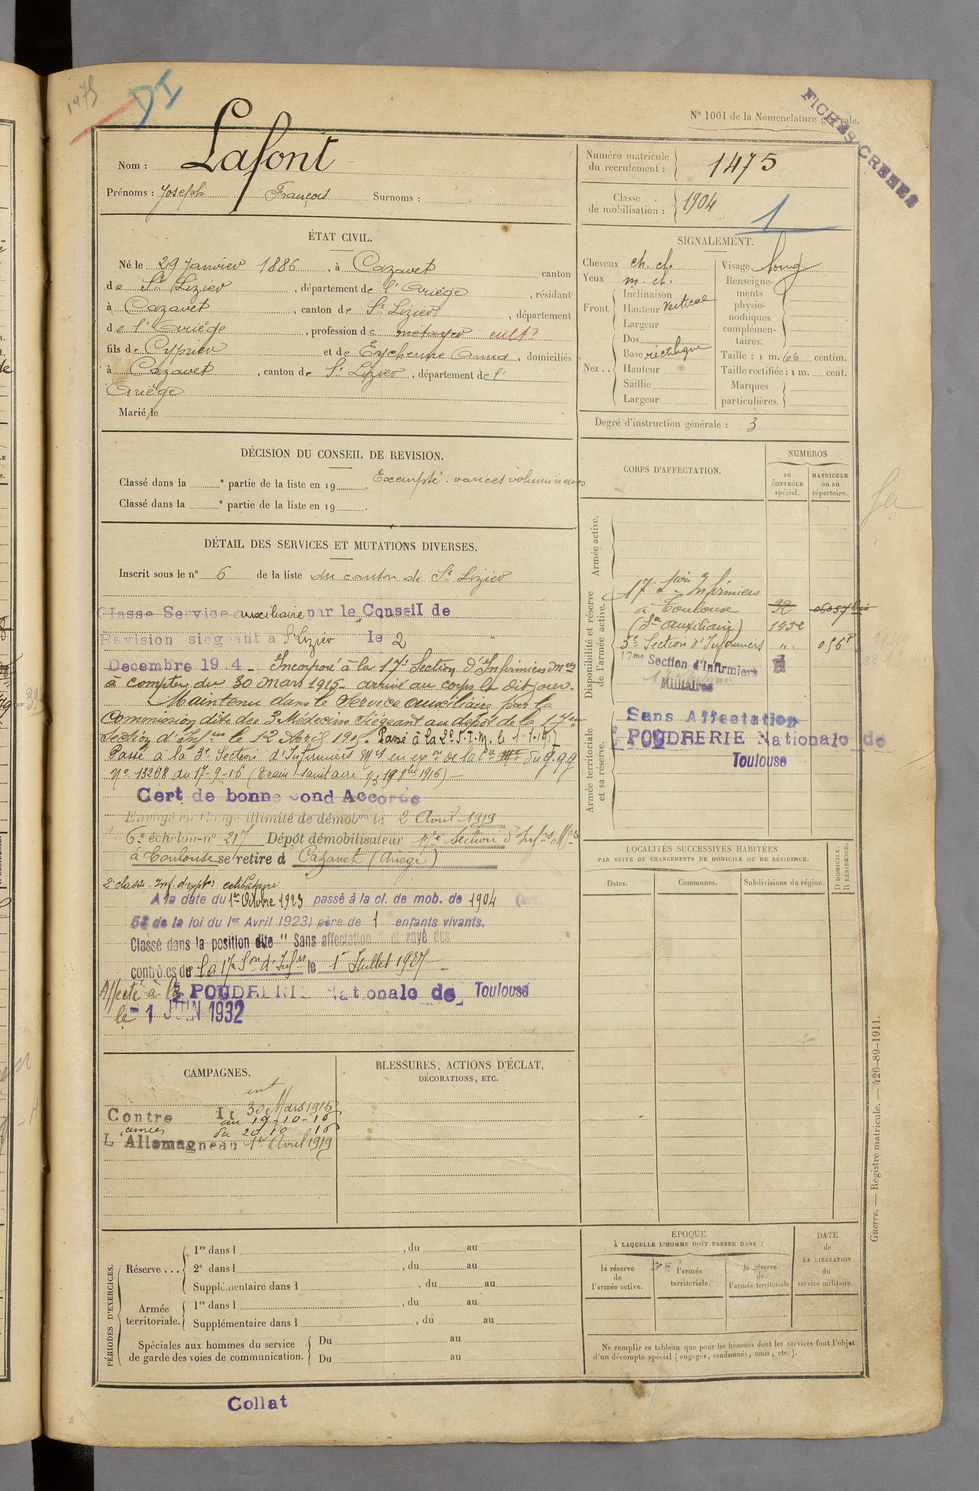 1475
DI
N° 1001 de la Nomenclature générale.
FICHES CREEES
Nom : Lafont
Prénoms : Joseph François Surnoms :
Numéro matricule du recrutement : 1475
Classe de mobilisation : 1904
1
ÉTAT CIVIL.
Né le 29 Janvier 1886, à Cazavet canton
de St Lizier, département de l'Ariège, résidant
à Cazavet, canton de St Lizier, département
de l'Ariège, profession de métayer cult
fils de Cyprien et de Eychenne Anna, domiciliés
à Cazavet, canton de St Lizier, département de l'
Ariège
Marié le
SIGNALEMENT.
Cheveux ch. cf.
Yeux m. cl.
Front Inclinaison
Hauteur Verticale
Largeur
Nez .. Dos
Base rectiligne
Hauteur
Saillie
Largeur
Visage long
Renseignements physionomiques complémentaires.
Taille : 1 m. 66 centim.
Taille rectifiée : 1 m. cent.
Marques particulières.
Degré d'instruction générale : 3
DÉCISION DU CONSEIL DE REVISION.
Classé dans la e partie de la liste en 19 Exempté. varices volumineuses
Classé dans la e partie de la liste en 19
DÉTAIL DES SERVICES ET MUTATIONS DIVERSES.
Inscrit sous le n° 6 de la liste du canton de St Lizier
Classe Service auxiliaire par le Conseil de
Revision siegeant à St Lizier le 2
Decembre 1914 - Incorporé à la 17e Section d'Infirmiers Mres
à compter du 30 Mars 1915 arrivé au corps le dit jour.
Maintenu dans le Service auxiliaire par la
Commission dite des 3 Médecins siégeant au dépôt de la 17e
Section d'Infres le 12 Avril 1915. Passé à la 2e S.I.M. le 1-7-15
Passé à la 5e Section d'Infirmiers Mres en ex on de la du G.Q.G
N° 13268 du 17-9-16 (Train sanitaire
Cert de bonne cond Accorde
Envoyé en congé illimité de démobon le 2 Avril 1919
6e échelon n° 217 Dépôt démobilisateur 17e Section d'Infres Mres
à Toulouse se retire à Cazavet (Ariège)
A la date du 1er Octobre 1923 passé à la cl. de mob. de 1904
58 de la loi du 1er Avril 1923) père de 1 enfants vivants.
Classé dans la position dite " Sans affectation " et rayé des
contrôles de la 17e Son d'Infres le 1er Juillet 1927
Affecté à la POUDRERIE Nationale de Toulouse
le - 1 JUIN 1932
CORPS D'AFFECTATION.
NUMÉROS
au CONTRÔLE spécial.
MATRICULE ou au répertoire.
Armée active.
Disponibilité et réserve de l'armée active.
Armée territoriale et sa réserve.
17e Son Infirmiers
à Toulouse
(Sce auxiliaire) 1952
5e Section d'Infirmiers " 0168
17me Section d'Infirmiers
Militaires
Sans Affectation
POUDRERIE Nationale de
Toulouse
LOCALITÉS SUCCESSIVES HABITÉES
PAR SUITE DE CHANGEMENTS DE DOMICILE OU DE RÉSIDENCE.
Dates. Communes. Subdivisions du région.
D DOMICILE.
R RÉSIDENCE.
CAMPAGNES.
Contre int 30 Mars 1915
au 19-10-16
L'Allemagne armées du 20 10 16
au 1er Avril 1919
BLESSURES, ACTIONS D'ÉCLAT,
DÉCORATIONS, ETC.
PÉRIODES D'EXERCICES.
Réserve ... 1re dans l , du au
2e dans l , du au
Supplémentaire dans l , du au
Armée territoriale. 1re dans l , du au
Supplémentaire dans l , du au
Spéciales aux hommes du service de garde des voies de communication. Du au
Du au
ÉPOQUE
À LAQUELLE L'HOMME DOIT PASSER DANS :
la réserve de l'armée active.
l'armée territoriale.
la réserve de l'armée territoriale
DATE de LA LIBÉRATION du service militaire.
Ne remplir ce tableau que pour les hommes dont les services font l'objet
d'un décompte spécial (engagés, condamnés, omis, etc.).
Guerre. — Registre matricule. — 426-89-1911.
Collat